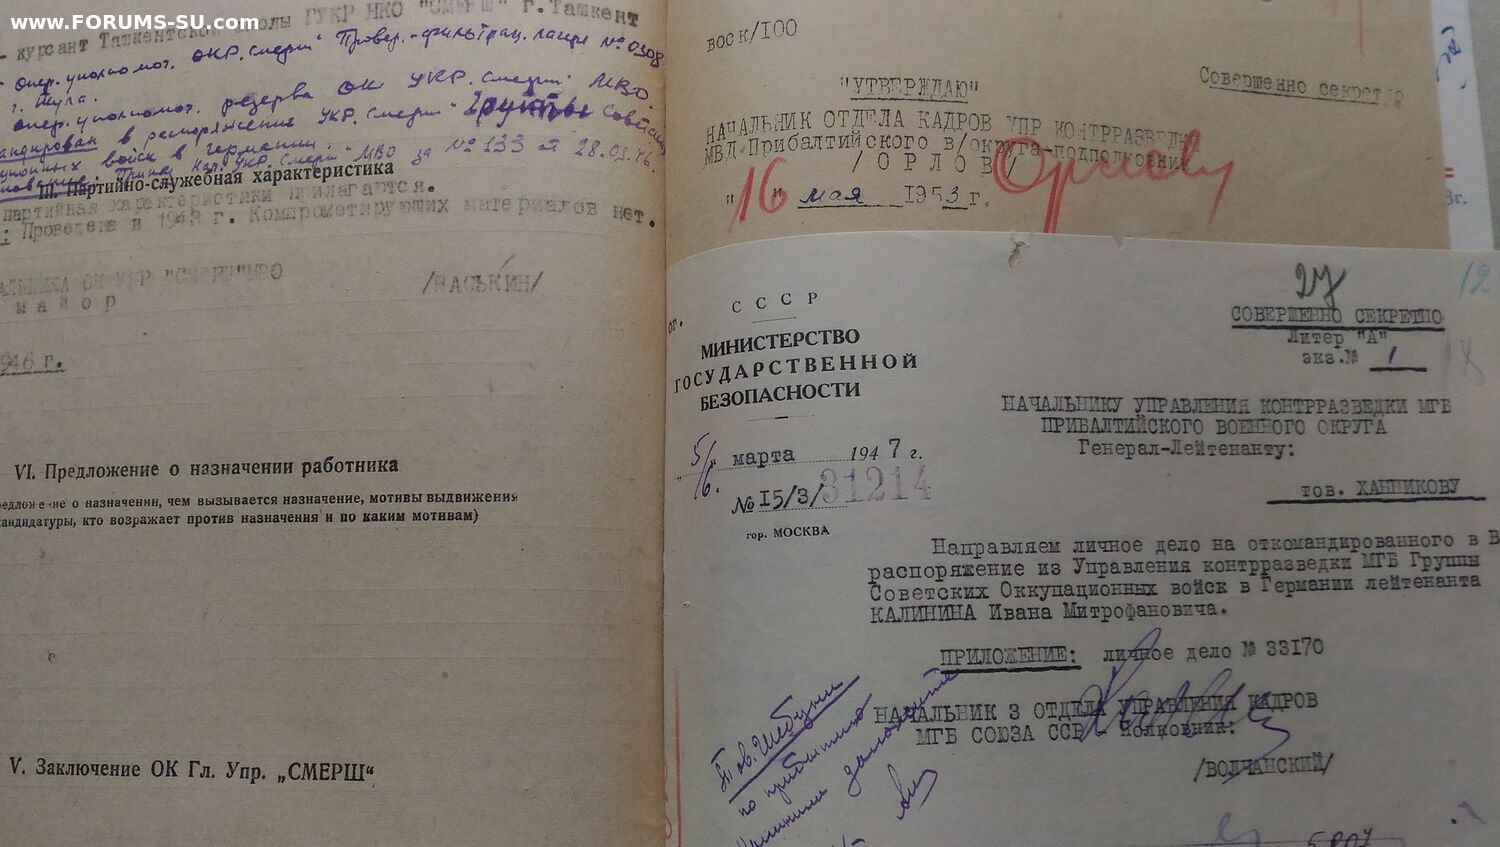 www.FORUMS-SU.com
курсант Ташкентской школы ГУКР НКО "СМЕРШ" г. Ташкент
Опер. уполномоч. ОКР. Смерш" Провер.-фильтрац. лагеря № 0308
г. Тула.
Опер. уполномоч. резерва ОК УКР. Смерш" МВО.
в распоряжение УКР. Смерш" Группы Советск
войск в Германии.
Нач. УКР. Смерш" МВО за № 133 от 28.03.46.
III. Партийно-служебная характеристика
партийная характеристики прилагаются.
: Проведена в 1943 г. Компрометирующих материалов нет.
ОК УКР "СМЕРШ" МВО
майор /ВАСЬКИН/
946 г.
VI. Предложение о назначении работника
редложение о назначении, чем вызывается назначение, мотивы выдвижения
кандидатуры, кто возражает против назначения и по каким мотивам)
V. Заключение ОК Гл. Упр. „СМЕРШ“
воск/100
Совершенно секретно
"УТВЕРЖДАЮ"
НАЧАЛЬНИК ОТДЕЛА КАДРОВ УПР КОНТРРАЗВЕДК
МВД-Прибалтийского в/округа-подполковник
/ОРЛОВ/
"16" мая 1953 г.
3г.
27
12
СОВЕРШЕННО СЕКРЕТНО
Литер "А"
экз.№ 1
СССР
МИНИСТЕРСТВО
ГОСУДАРСТВЕННОЙ
БЕЗОПАСНОСТИ
5/6 марта 1947 г.
№ 15/3/31214
гор. МОСКВА
НАЧАЛЬНИКУ УПРАВЛЕНИЯ КОНТРРАЗВЕДКИ МГБ
ПРИБАЛТИЙСКОГО ВОЕННОГО ОКРУГА
Генерал-Лейтенанту:
тов. ХАННИКОВУ
Направляем личное дело на откомандированного в В
распоряжение из Управления контрразведки МГБ Группы
Советских Оккупационных войск в Германии лейтенанта
КАЛИНИНА Ивана Митрофановича.
ПРИЛОЖЕНИЕ: личное дело № 33170
НАЧАЛЬНИК 3 ОТДЕЛА УПРАВЛЕНИЯ КАДРОВ
МГБ СОЮЗА ССР - Полковник:
/ВОЛЧАНСКИЙ/
Тов.
по прибытию
Калинина доложите